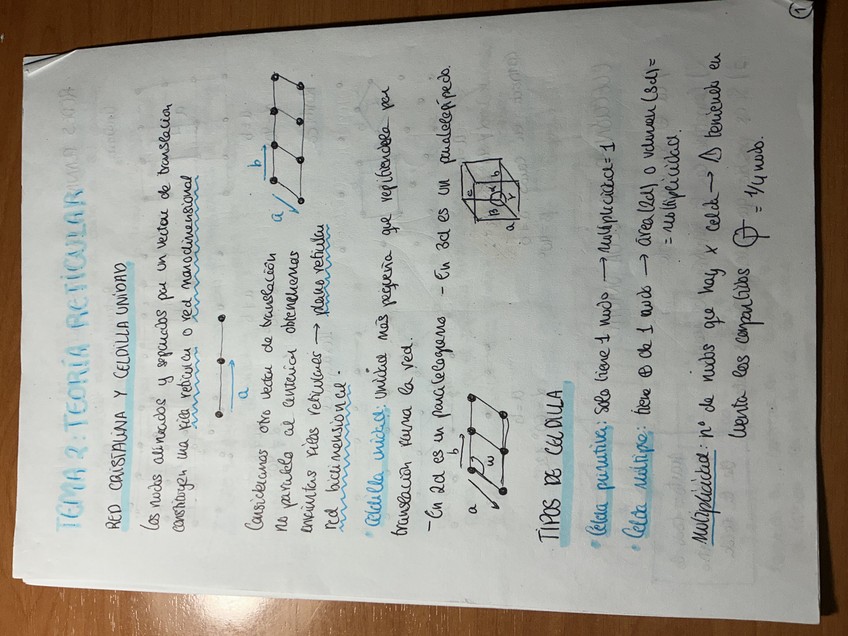 1
TEMA 2: TEORÍA RETICULAR
RED CRISTALINA Y CELDILLA UNIDAD
Los nudos alineados y separados por un vector de translación
constituyen una fila reticular o red monodimensional
a
Consideramos otro vector de translación
no paralelo al anterior obtenemos
infinitas filas reticulares → plano reticular
red bidimensional.
a b
• Celdilla unidad: unidad más pequeña que repitiendola por
translación forma la red.
- En 2d es un paralelogramo - En 3d es un paralelepípedo.
a b ω
a b c α β γ
TIPOS DE CELDILLA
• Celda primitiva: Solo tiene 1 nudo → multiplicidad = 1
• Celda múltiple: tiene ⊕ de 1 nudo → área (2d) o volumen (3d) =
= multiplicidad.
Multiplicidad: nº de nudos que hay x celda → Δ teniendo en
cuenta los compartidos = 1/4 nudo.